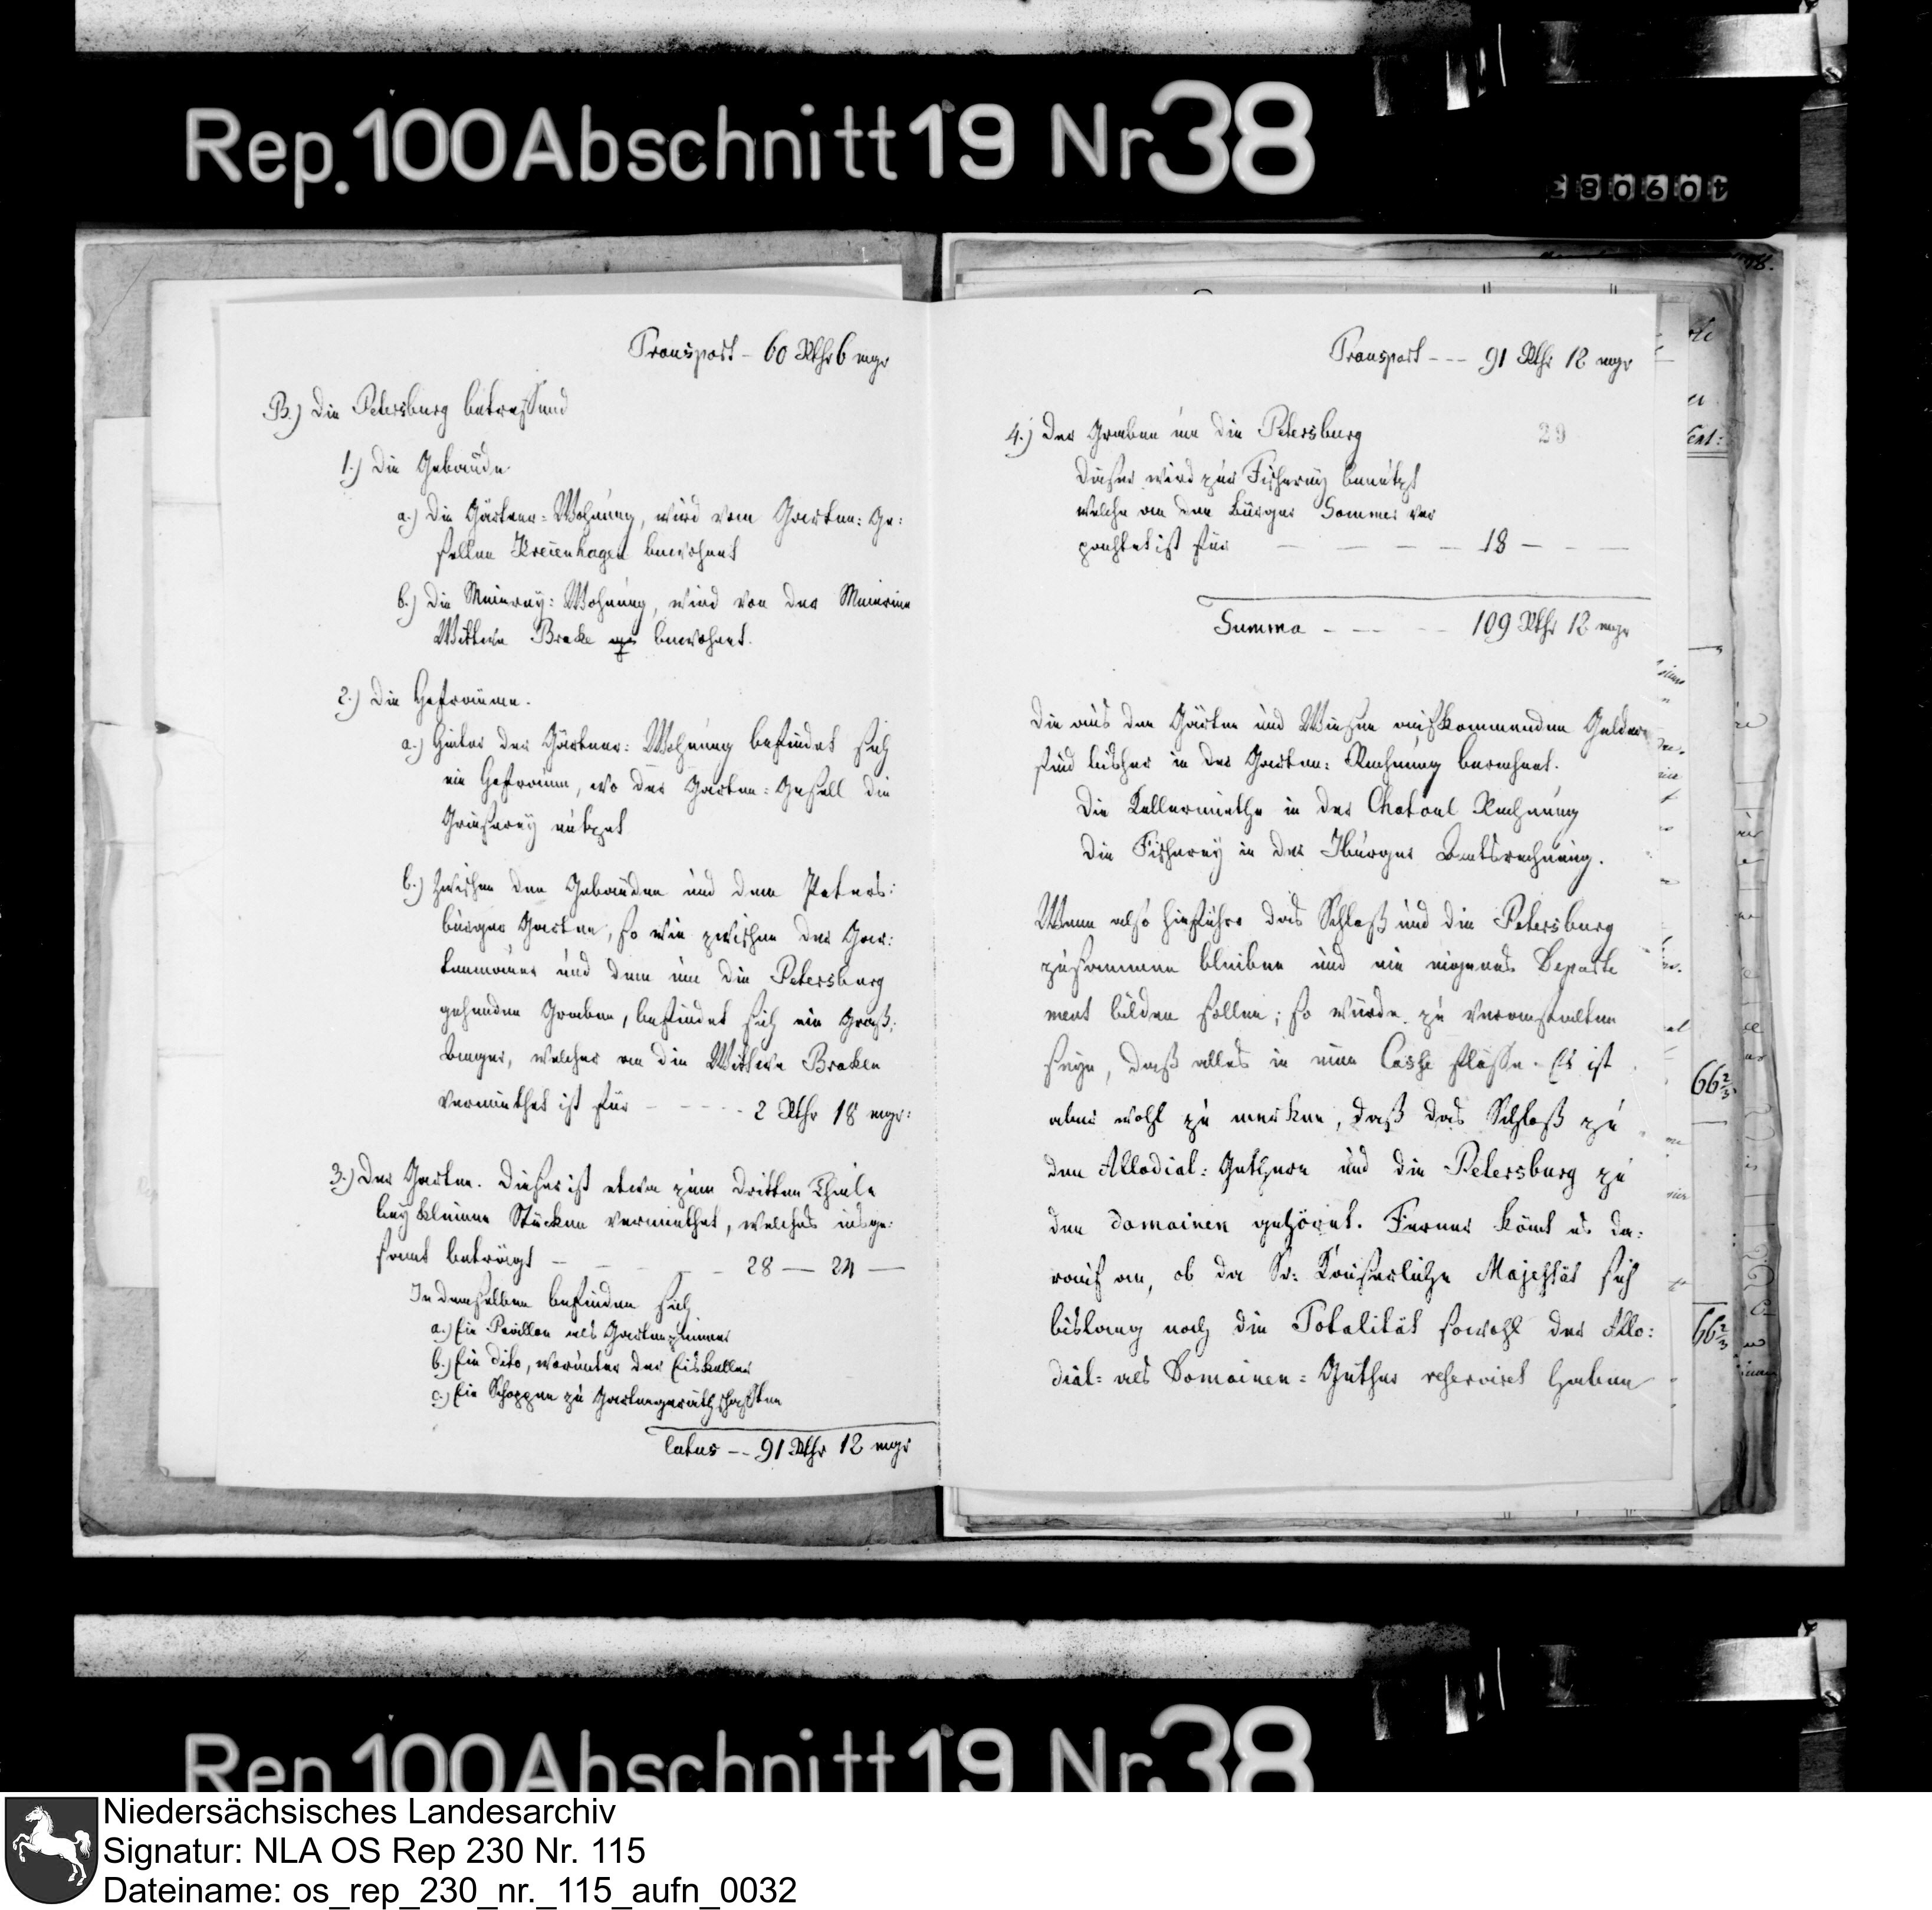 Rep. 100 Abschnitt 19 Nr 38
Transport - 60 Rthr 6 mgr
B.) Die Petersburg betreffend
1.) Die Gebäude
a.) Die Gärtner=Wohnung, wird vom Garten: Ge:
sellen Kreienhagen bewohnt
b.) Die Meierey: Wohnung, wird von der Meierinn
Wittwe Brake bewohnt.
2.) Die Hofräume.
a.) Hinter der Gärtner: Wohnung befindet sich
ein Hofraum, wo der Garten=Gesell die
nützet
b.) Zwischen den Gebäuden und dem Peters:
burger Garten, so wie zwischen der Gar:
tenmauer und dem um die Petersburg
gehenden Graben, befindet sich ein Graß:
Anger, welcher an die Wittwe Braken
vermiethet ist für - - - - - 2 Rthr 18 mgr:
3.) Der Garten. Dieser ist etwa zum dritten Theile
bey kleinen Stücken vermiethet, welches insge:
samt beträgt - - - - - 28 — 24 —
In demselben befinden sich
a.) Ein Pavillon als Gartenzimmer
b.) Ein dito, worunter der Eiskeller
c.) Ein Schoppen zu Gartengeräthschaften
latus -- 91 Rthr 12 mgr
Transport --- 91 Rthr 12 mgr
29
4.) Der Graben um die Petersburg
Dieser wird zur Fischerey benutzt
welche an den Bürger Sommer ver
pachtet ist für — — — — 18 — — —
Summa - - - - - 109 Rthr 12 mgr
Die aus den Gärten und Wiesen aufkommenden Gelder
sind bisher in der Garten: Rechnung berechnet.
Die Kellermiethe in der Chatoul Rechnung
Die Fischerey in der Iburger Amtsrechnung.
Wenn also hinführo das Schloß und die Petersburg
zusammen bleiben und ein eigenes Departe
ment bilden sollen; so würde zu veranstalten
seyn, daß alles in eine Casse flösse. Es ist
aber wohl zu merken, daß das Schloß zu
den Allodial: Güthern und die Petersburg zu
den Domainen gehöret. Ferner kömt es da:
rauf an, ob da Sr: Kaiserliche Majestät sich
bislang noch die Totalität sowohl der Allo:
dial= als Domainen=Güther reserviret haben
66 2/3
66 2/3
Rep. 100 Abschnitt 19 Nr. 38
Niedersächsisches Landesarchiv
Signatur: NLA OS Rep 230 Nr. 115
Dateiname: os_rep_230_nr._115_aufn_0032